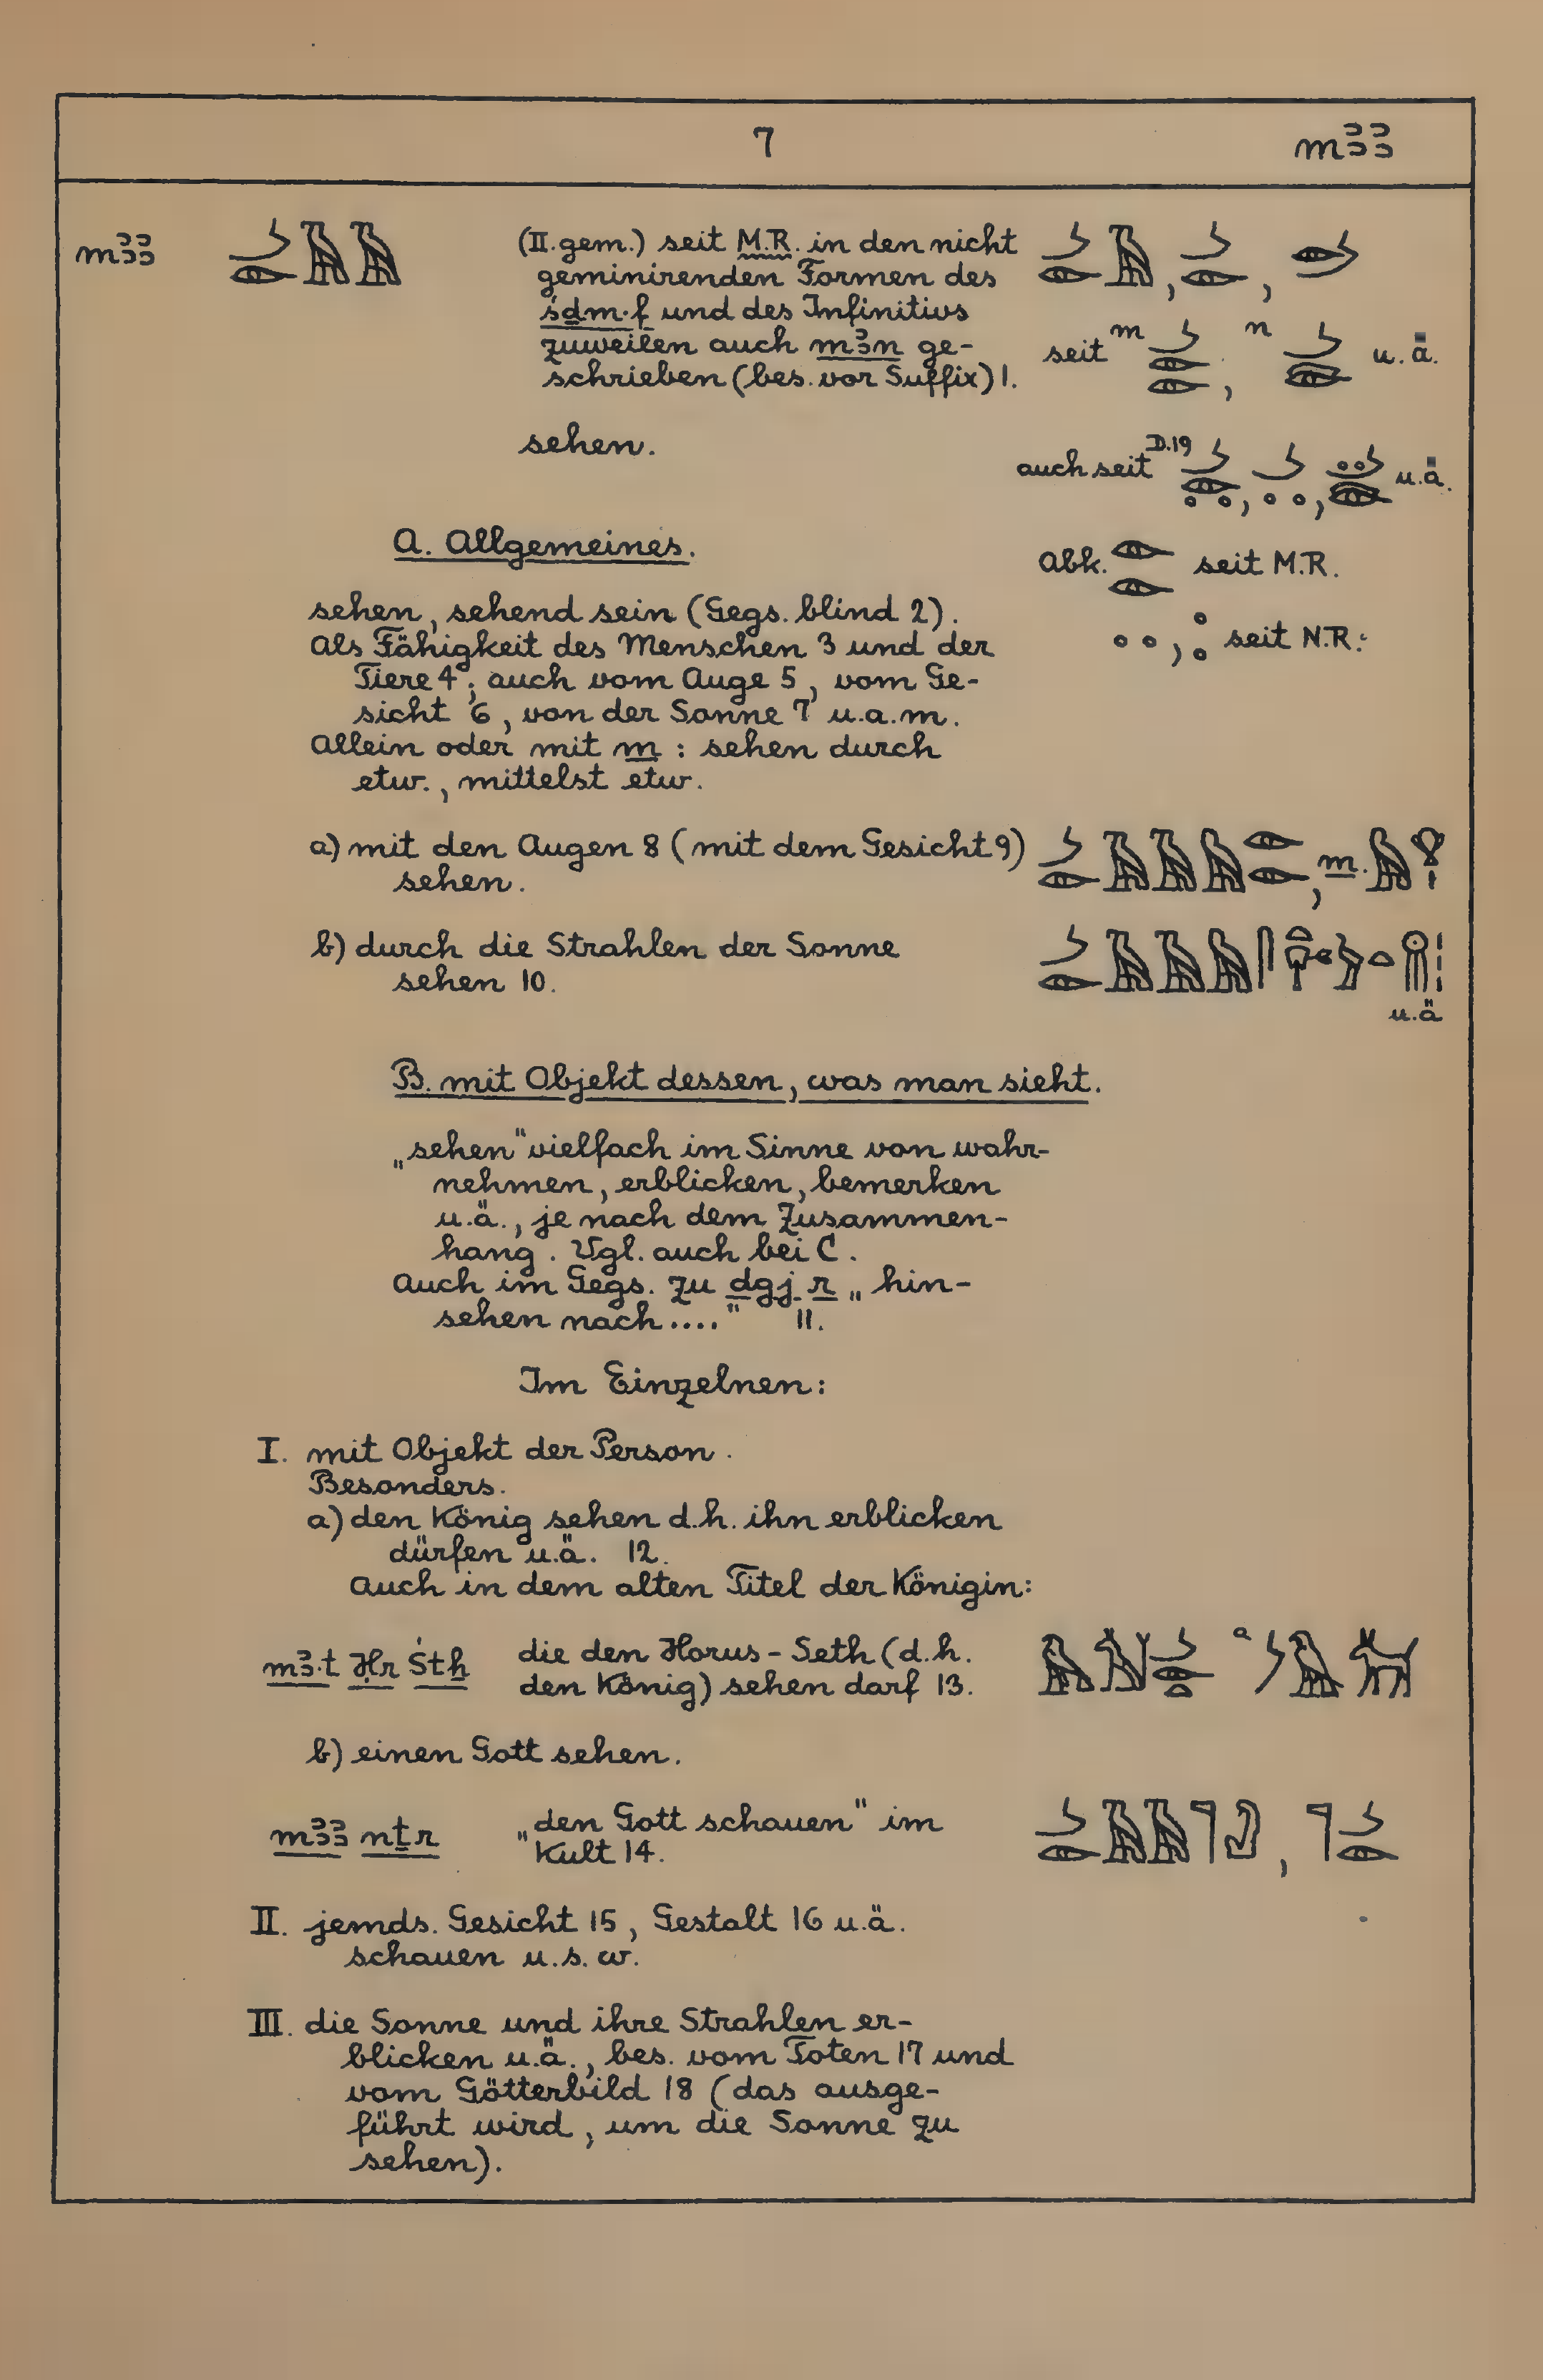 7 mꜣꜣ
mꜣꜣ (II.gem.) seit M.R. in den nicht
geminirenden Formen des
śḏm·f und des Infinitivs
zuweilen auch mꜣn ge-
schrieben (bes. vor Suffix) 1.
seit m , n u. ä.
sehen.
auch seit D.19 , , u.ä.
A. Allgemeines.
Abk. seit M.R.
, seit N.R.
sehen, sehend sein (Gegs. blind 2).
Als Fähigkeit des Menschen 3 und der
Tiere 4; auch vom Auge 5, vom Ge-
sicht 6, von der Sonne 7 u.a.m.
Allein oder mit m : sehen durch
etw., mittelst etw.
a) mit den Augen 8 (mit dem Gesicht 9) , m.
sehen.
b) durch die Strahlen der Sonne
sehen 10.
u.ä
B. mit Objekt dessen, was man sieht.
„sehen" vielfach im Sinne von wahr-
nehmen, erblicken, bemerken
u.ä., je nach dem Zusammen-
hang. Vgl. auch bei C.
Auch im Gegs. zu dgj r „hin-
sehen nach...." 11.
Im Einzelnen:
I. mit Objekt der Person.
Besonders.
a) den König sehen d.h. ihn erblicken
dürfen u.ä. 12.
Auch in dem alten Titel der Königin:
mꜣ·t Ḥr Śtḫ die den Horus-Seth (d.h.
den König) sehen darf 13.
b) einen Gott sehen.
mꜣꜣ nṯr „den Gott schauen" im
Kult 14.
II. jemds. Gesicht 15, Gestalt 16 u.ä.
schauen u.s.w.
III. die Sonne und ihre Strahlen er-
blicken u.ä., bes. vom Toten 17 und
vom Götterbild 18 (das ausge-
führt wird, um die Sonne zu
sehen).